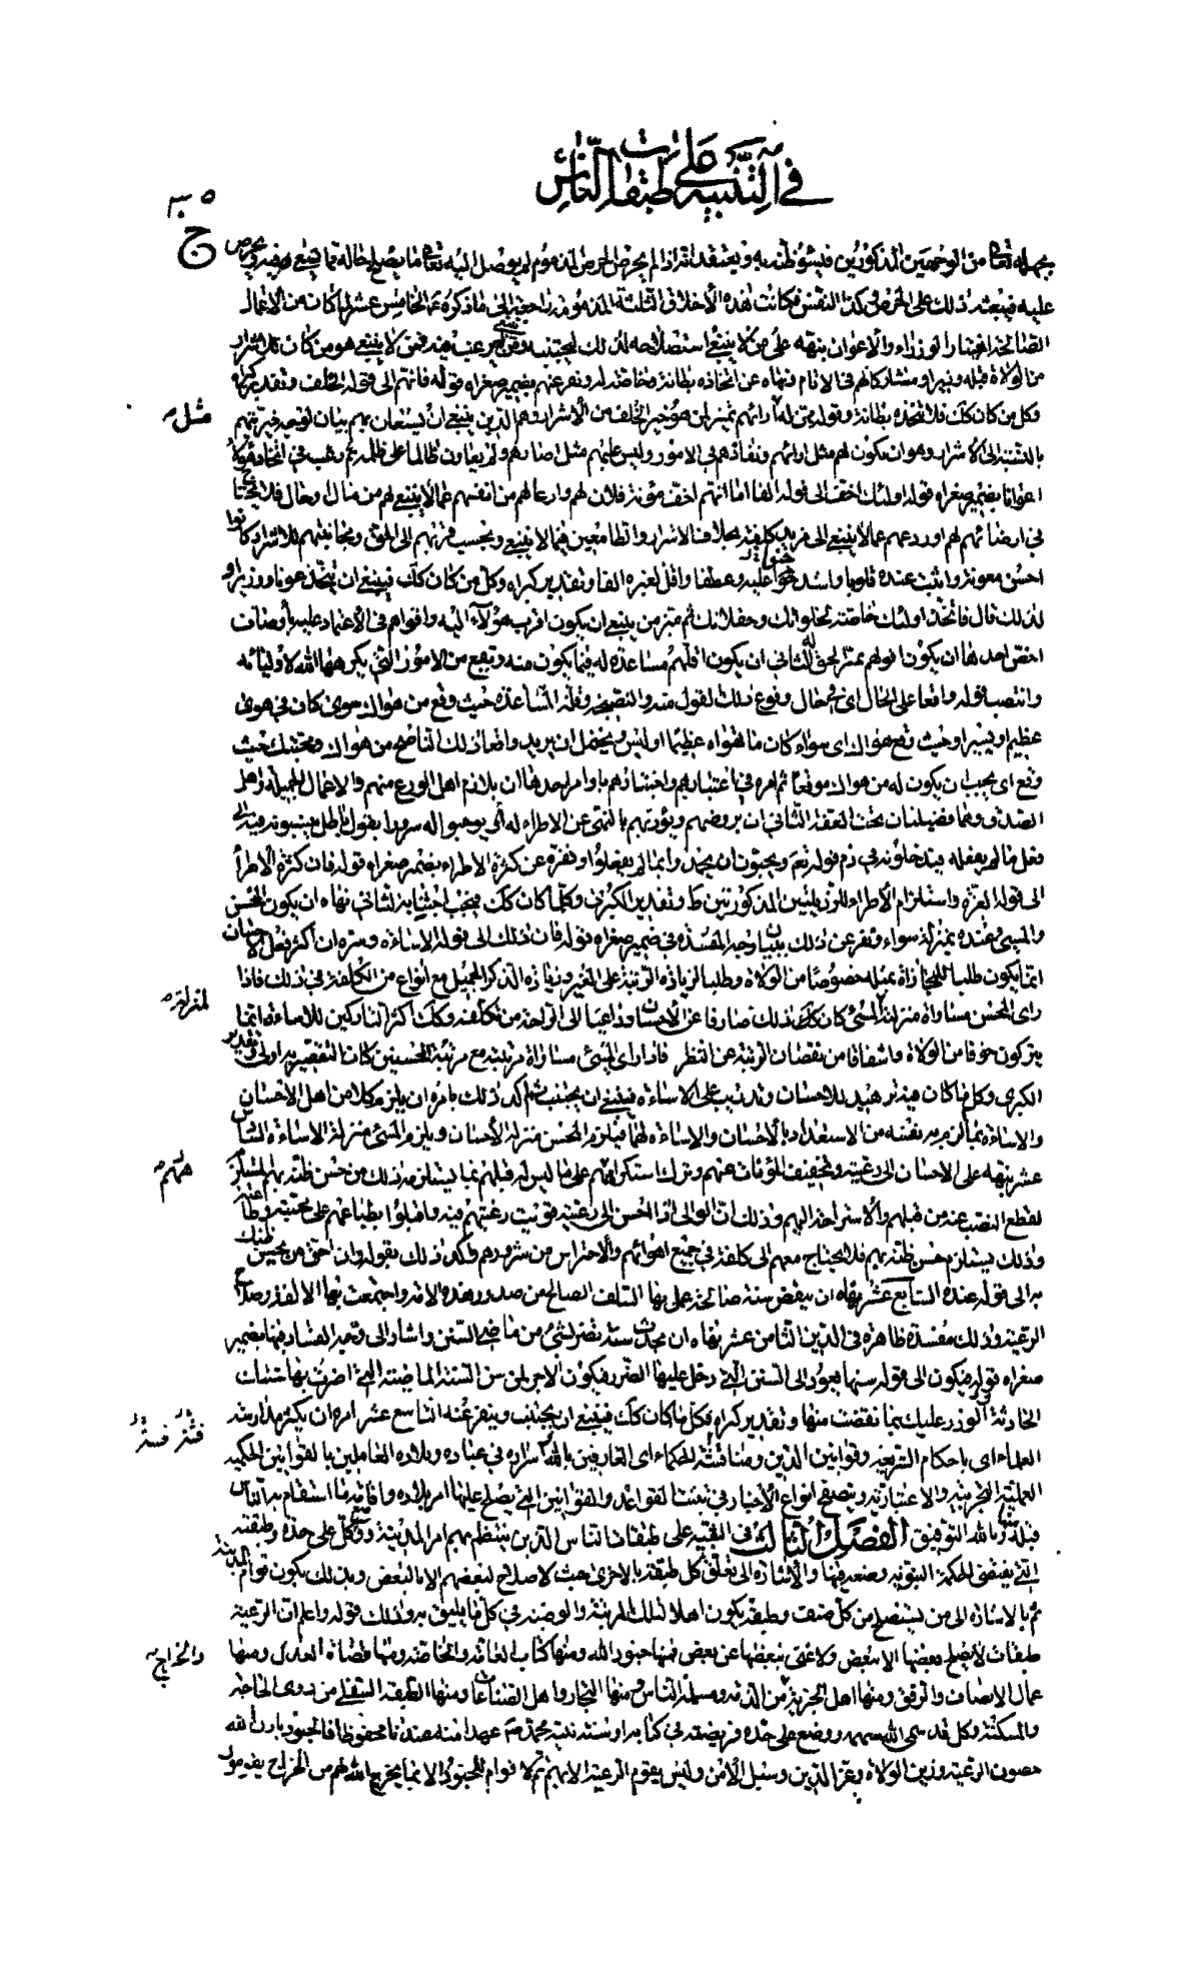 في التنبيه على طبقات الناس
بجهله تعالى من الوجهين المذكورين فيسوء ظنه به ويعتقد انه اذا لم يحرص الحرص المذموم لم يوصل اليه تعالى ما يصلح حاله مما ينبغي
عليه فيبعثه ذلك على الحرص وكد النفس فكانت هذه الاخلاق الثلثة المذمومة راجعة الى ما ذكره ع الخامس عشر لما كان من الاعمال
الصالحة اختيار الوزراء والاعوان نبهه على من لا ينبغي استصلاحه لذلك ليجتنبه ومن ينبغي ليرغب فيه فمن لا ينبغي هو من كان للاشرار
من الولاة قبله وزيرا ومشاركا لهم في الاثام ونهاه عن اتخاذه بطانة وخاصة له ونفر عنهم بضمير صغراه قوله فانهم الى قوله الخلف وتقدير كبراه
وكل من كان كك فلا تتخذه بطانة وقوله ممن له مثل ارائهم تمييز لمن هو خير الخلف من الاشرار وهم الذين ينبغي ان يستعان بهم
بالنسبة الى الاشرار وهو ان يكون لهم مثل ارائهم ونفاذهم في الامور وليس عليهم مثل اصارهم ولم يعاون ظالما على ظلمه ثم رغب في اتخاذ هؤلاء
اعوانا بضمير صغراه قوله اولئك اخف الى قوله الفا اما انهم اخف مؤنة فلان لهم وازعا لهم من انفسهم عما لا ينبغي لهم من مال وحال فلا يحتاج
في ارضائهم لهم او ردعهم عما لا ينبغي الى مزيد كلفة بخلاف الاشرار والطامعين فيما لا ينبغي وبحسب قربهم الى الحق ومجانبتهم للاشرار كانوا
احسن معونة واثبت عنده قلوبا واشد حنوا عليه وعطفا واقل لغيره الفا وتقدير كبراه وكل من كان كك فينبغي ان يتخذ عونا ووزيرا و
لذلك قال فاتخذ اولئك خاصة لخلواتك وحفلاتك ثم ميز من ينبغي ان يكون اقرب هؤلاء اليه واقواهم في الاعتماد عليه باوصاف
اخص احدها ان يكون اقولهم بمر الحق له الثاني ان يكون اقلهم مساعدة له فيما يكون منه ويقع من الامور التي يكرهها الله لاوليائه
وانتصب قوله واقعا على الحال اي في حال وقوع ذلك القول منه والنصيحة وقلة المساعدة حيث وقع من هواك سوى كان في هوى
عظيم او يسير او حيث وقع هواك اي سواء كان ما تهواه عظيما او ليس ويحتمل ان يريد واقعا ذلك الناصح من هواك ومحبتك حيث
وقع اي يجب ان يكون له من هواك موقعا ثم امره في اعتبارهم واختيارهم باوامر احدها ان يلازم اهل الورع منهم والاعمال الجميلة واهل
الصدق وهما فضيلتان تحت العفة الثاني ان يروضهم ويؤدبهم بالنهي عن الاطراء له او يوجبوا له سرورا بقول باطل ينسبونه فيه الى
فعل ما لم يفعله فيدخلونه في ذم قوله تعالى ويحبون ان يحمدوا بما لم يفعلوا ونفره عن كثرة الاطراء بضمير صغراه قوله فان كثرة الاطراء
الى قوله العزة واستلزام الاطراء للرذيلتين المذكورتين ظ وتقدير الكبرى وكلما كان كك فيجب اجتنابه الثالث نهاه ان يكون المحسن
والمسيء عنده بمنزلة سواء ونفر عن ذلك ببيان وجه المفسدة في ضمير صغراه قوله فان ذلك الى قوله الاساءة وسره ان اكثر فعل الاحسان
انما يكون طلبا للمجازاة بمثله خصوصا من الولاة وطلبا لزيادة الرتبة على الغير وزيادة الذكر الجميل مع انواع من الكلفة في ذلك فاذا
راى المحسن مساواة منزلته لمنزلة المسيء كان ذلك صارفا عن الاحسان وداعيا الى الراحة من تكلفه وكك اكثر التاركين للاساءة انما
يتركون خوفا من الولاة واشفاقا من نقصان الرتبة عن النظر فاذا راى المسيء مساواة مرتبته مع مرتبة المحسنين كان التقصير به اولى وتقدير
الكبرى وكل ما كان فيه تزهيد للاحسان وتدريب على الاساءة فينبغي ان يجتنب ثم اكد ذلك بامره ان يلزم كلا من اهل الاحسان
والاساءة بما الزم به نفسه من الاستعداد بالاحسان والاساءة لهما فيلزم المحسن منزلة الاحسان ويلزم المسيء منزلة الاساءة السادس
عشر نبهه على الاحسان الى رعيته وتخفيف المؤنات عنهم وترك استكراههم على ما ليس له قبلهم بما يستلزمه ذلك من حسن ظنه بهم المستلزم
لقطع النصب عنه من قبلهم والاستراحة اليهم وذلك ان الوالي اذا احسن الى رعيته قويت رغبتهم فيه واقبلوا بطباعهم على محبته وطاعته
وذلك يستلزم حسن ظنه بهم فلا يحتاج معهم الى كلفة في جميع اهوائهم والاحتراس من شرورهم واكد ذلك بقوله وان احق من يحسن ظنك
به الى قوله عنده السابع عشر نهاه ان ينقض سنة صالحة عمل بها السلف الصالح من صدور هذه الامة واجتمعت بها الالفة وصلاح
الرعية وذلك مفسدة ظاهرة في الدين الثامن عشر نهاه ان يحدث سنة تضر بشيء من ماضي السنن واشار الى وجه الفساد فيها بضمير
صغراه قوله فيكون الى قوله سنها يعود الى السنن التي دخل عليها الضرر فيكون الاجر لمن سن السنة الماضية التي اضرت بها سنتك
الحادثة والوزر عليك بما نقضت منها وتقدير كبراه فكل ما كان كك فينبغي ان يجتنب وينفر عنه التاسع عشر امره ان يكثر مدارسة
العلماء اي باحكام الشريعة وقوانين الدين ومناقشة الحكماء اي العارفين بالله باسراره في عباده وبلاده العاملين بالقوانين الحكمية
العملية التجربية والاعتبارية وتصفح انواع الاخبار في تثبيت القواعد والقوانين التي يصلح عليها امر بلاده واقامة ما استقام به الناس
قبله وبالله التوفيق الفصل الثالث في التنبيه على طبقات الناس الذين ينتظم بهم امر المدينة ووضع كل على حده وطبقته
التي يقتضي الحكمة النبوية وضعه فيها والاشارة الى تعلق كل طبقة بالاخرى حيث لا صلاح لبعضهم الا بالبعض وبذلك يكون قوام المدينة
ثم بالاشارة الى من يستصلح من كل صنف وطبقة يكون اهلا لتلك المرتبة والوصية في كل ما يليق به وذلك قوله واعلم ان الرعية
طبقات لا يصلح بعضها الا ببعض ولا غنى ببعضها عن بعض فمنها جنود الله ومنها كتاب العامة والخاصة ومنها قضاة العدل ومنها
عمال الانصاف والرفق ومنها اهل الجزية من الذمة ومسلمة الناس ومنها التجار واهل الصناعات ومنها الطبقة السفلى من ذوي الحاجة
والمسكنة وكل قد سمى الله سهمه ووضع على حده فريضته في كتابه او سنة نبيه محمد صم عهدا منه عندنا محفوظا فالجنود باذن الله
حصون الرعية وزين الولاة وعز الدين وسبل الامن وليس يقوم الرعية الا بهم ثم لا قوام للجنود الا بما يخرج الله لهم من الخراج
ج
مثل
لمنزلة
والخراج